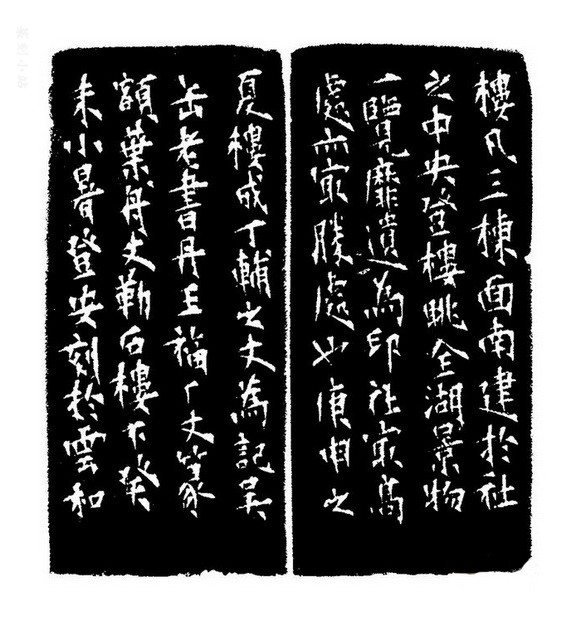 樓凡三棟面南建於社
之中央登樓眺全湖景物
一覽靡遺為印社冣高
處亦冣勝處也庚申之
夏樓成丁輔之丈為記吳
缶老書丹王福厂丈篆
額葉舟丈勒石樓下癸
未小暑登安刻於雲和